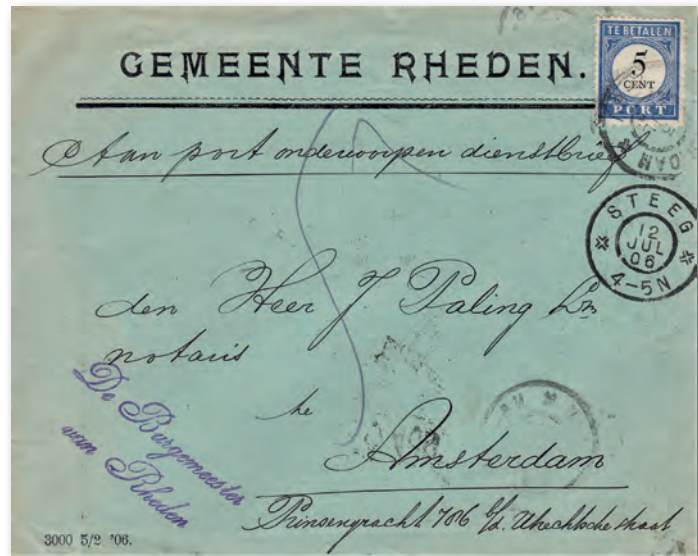 GEMEENTE RHEDEN.
TE BETALEN
5
CENT
PORT
DAM
Aan port onderworpen dienstbrief
STEEG
12
JUL
06
4-5N
den Heer J. Paling Lzn
notaris
te
Amsterdam
Prinsengracht 706 b/d. Utrechtschestraat
De Burgemeester
van Rheden
3000 5/2 '06.